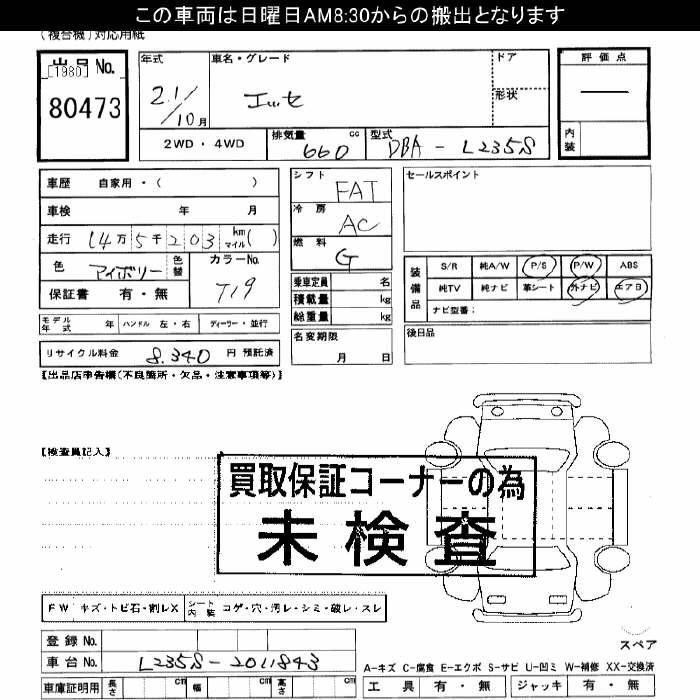 この車両は日曜日AM8:30からの搬出となります
(複合機)対応用紙
出品No.
[1980]
80473
年式
21/10月
車名・グレード
エッセ
ドア
形状
評価点
内装
2WD・4WD
排気量 660 cc
型式 DBA-L235S
車歴 自家用・( )
車検 年 月
走行 14万5千203km マイル( )
色 アイボリー 色替
カラーNo. T19
保証書 有・無
シフト FAT
冷房 AC
燃料 G
乗車定員 名
積載量 kg
総重量 kg
名変期限
月 日
セールスポイント
装備品
S/R 純A/W P/S P/W ABS
純TV 純ナビ 革シート 外ナビ エアB
ナビ型番：
後日品
モデル年式 年 ハンドル 左・右 ディーラー・並行
リサイクル料金 8,340 円 預託済
【出品店申告欄(不良箇所・欠品・注意事項等)】
【検査員記入】
買取保証コーナーの為
未検査
FW キズ・トビ石・割レX シート内装 コゲ・穴・汚レ・シミ・破レ・スレ
登録No.
車台No. L235S-2011843
車庫証明用 長さ cm 幅 cm 高さ cm
スペア
A-キズ C-腐食 E-エクボ S-サビ U-凹ミ W-補修 XX-交換済
工具 有・無 ジャッキ 有・無